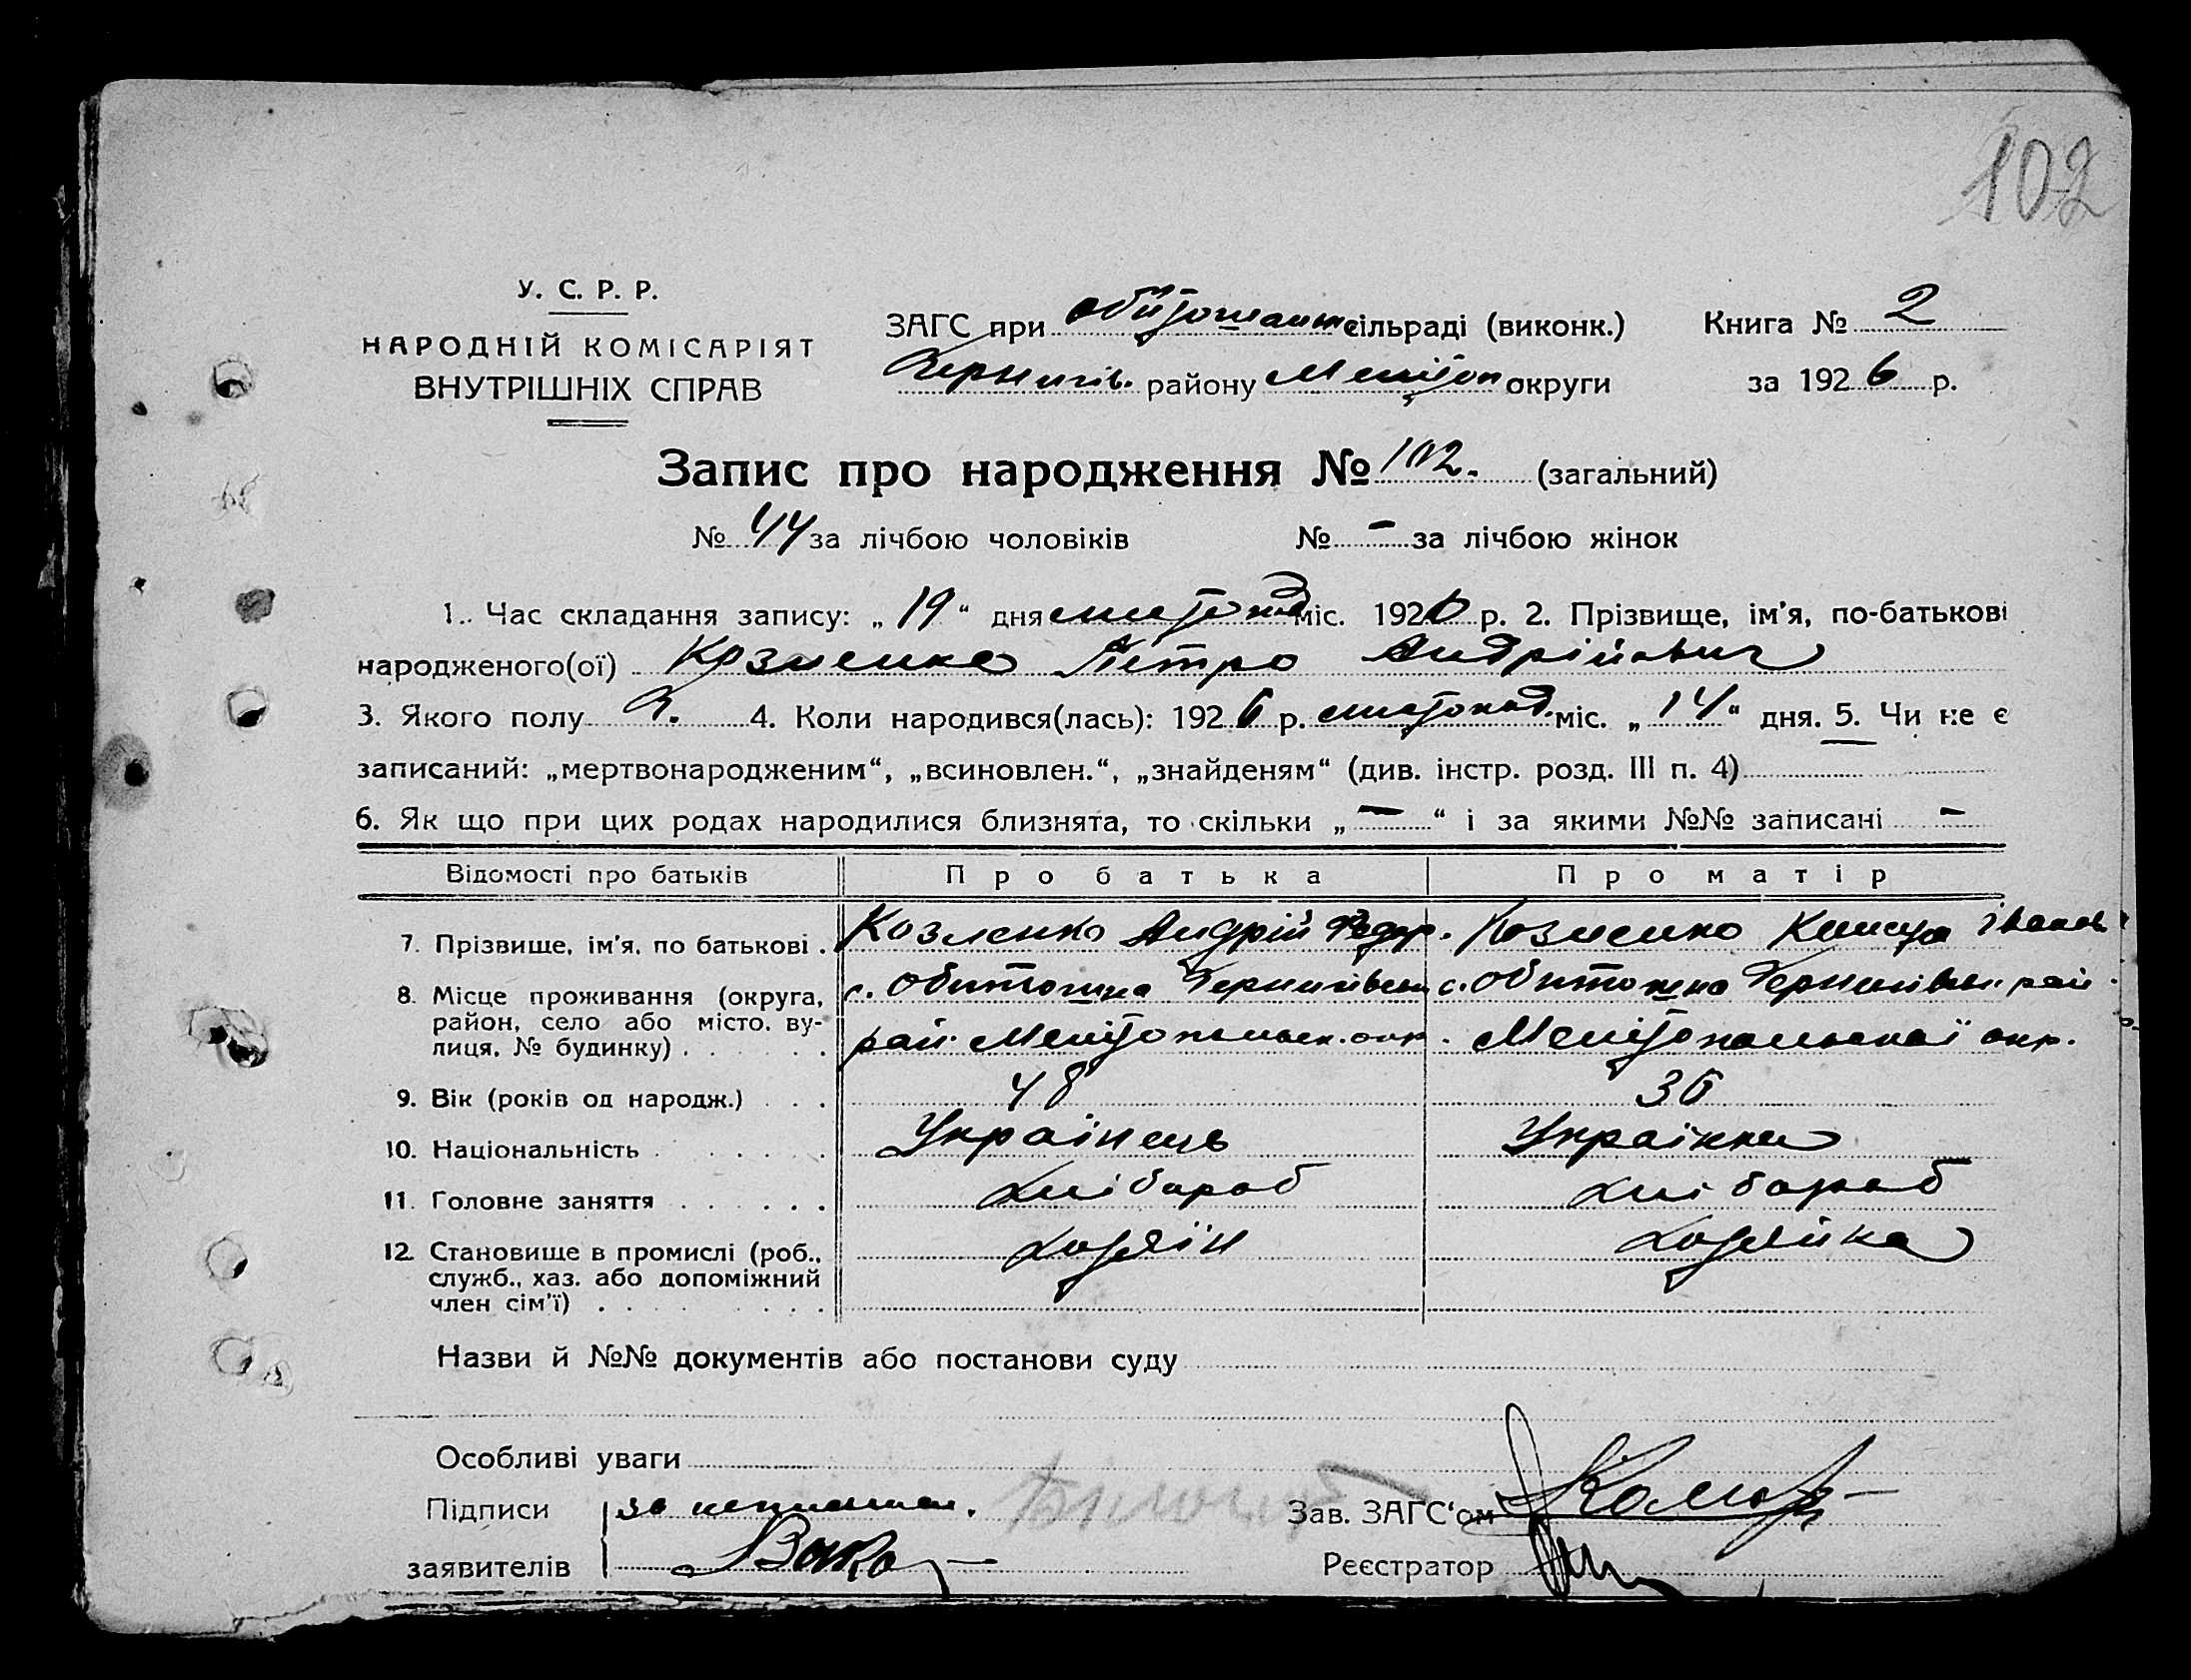 102
У. С. Р. Р.
НАРОДНІЙ КОМІСАРІЯТ
ВНУТРІШНІХ СПРАВ
ЗАГС при Обиточанск сільраді (виконк.) Книга № 2
Чернигів. району Мелітоп округи за 1926 р.
Запис про народження № 102. (загальний)
№ 44 за лічбою чоловіків № – за лічбою жінок
1. Час складання запису: „19“ дня листопад міс. 1926 р. 2. Прізвище, ім'я, по-батькові
народженого(ої) Козленко Петро Андрійович
3. Якого полу Ч. 4. Коли народився(лась): 1926 р. листопад. міс. „14“ дня. 5. Чи не є
записаний: „мертвонародженим“, „всиновлен.“, „знайденям“ (див. інстр. розд. III п. 4)
6. Як що при цих родах народилися близнята, то скільки „–“ і за якими №№ записані –
Відомості про батьків Про батька Про матір
7. Прізвище, ім'я, по батькові . Козленко Андрій Федор. Козленко Іванов
8. Місце проживання (округа, с. Обиточна Чернигівськ с. Обиточна Чернигівськ. рай.
район, село або місто, ву-
лиця, № будинку) . . . . . . рай. Мелітопольск. окр. Мелітопольської окр.
9. Вік (років од народж.) . . . 48 36
10. Національність . . . . . . Українець Українка
11. Головне заняття . . . . . . хлібороб хлібороб
12. Становище в промислі (роб., хозяїн хозяйка
служб., хаз. або допоміжний
член сім'ї) . . . . . . . . .
Назви й №№ документів або постанови суду
Особливі уваги
Підписи за неписьмен.
Зав. ЗАГС'ом
заявителів
Реєстратор